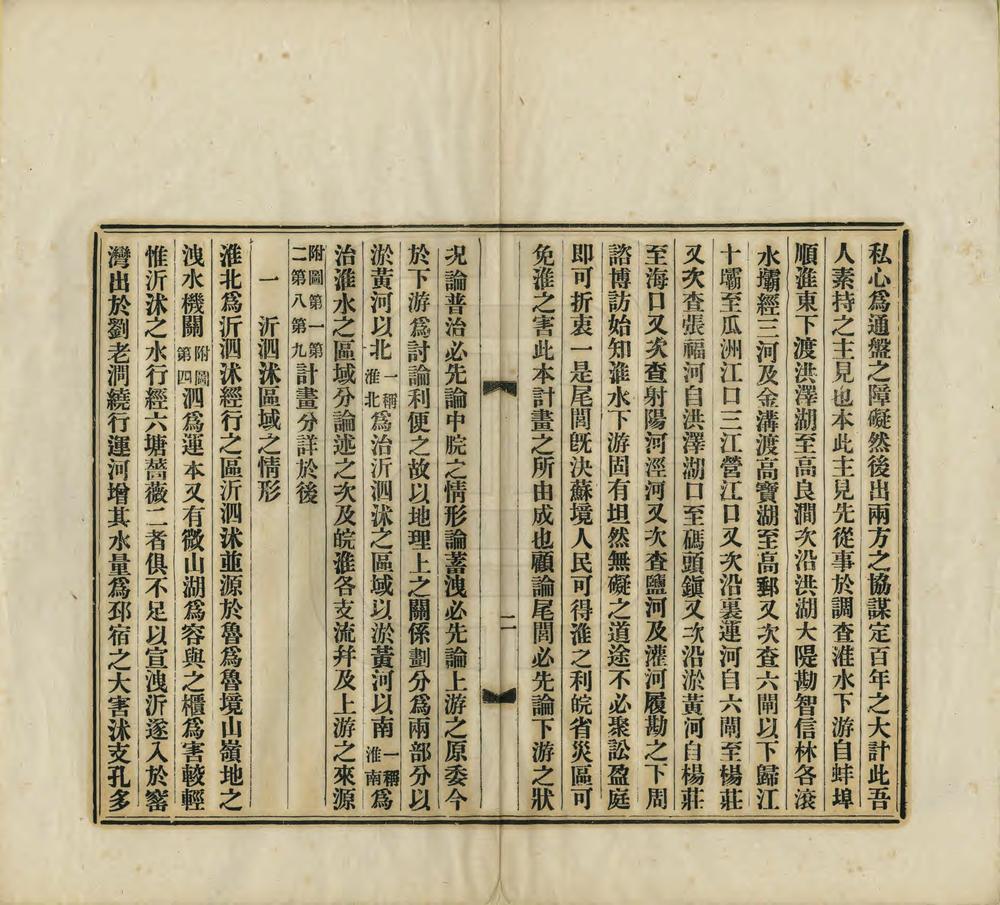 私心爲通盤之障礙然後出兩方之協謀定百年之大計此吾
人素持之主見也本此主見先從事於調查淮水下游自蚌埠
順淮東下渡洪澤湖至高良澗次沿洪湖大隄勘智信林各滾
水壩經三河及金溝渡高寶湖至高郵又次查六閘以下歸江
十壩至瓜洲江口三江營江口又次沿裏運河自六閘至楊莊
又次查張福河自洪澤湖口至碼頭鎭又次沿淤黃河自楊莊
至海口又次查射陽河涇河又次查鹽河及灌河履勘之下周
諮博訪始知淮水下游固有坦然無礙之道途不必聚訟盈庭
即可折衷一是尾閭旣決蘇境人民可得淮之利皖省災區可
免淮之害此本計畫之所由成也顧論尾閭必先論下游之狀
二
況論普治必先論中脘之情形論蓄洩必先論上游之原委今
於下游爲討論利便之故以地理上之關係劃分爲兩部分以
淤黃河以北一稱淮北爲治沂泗沭之區域以淤黃河以南一稱淮南爲
治淮水之區域分論述之次及皖淮各支流幷及上游之來源
附圖第一第二第八第九計畫分詳於後
一　沂泗沭區域之情形
淮北爲沂泗沭經行之區沂泗沭並源於魯爲魯境山嶺地之
洩水機關附圖第四泗爲運本又有微山湖爲容與之櫃爲害較輕
惟沂沭之水行經六塘薔薇二者俱不足以宣洩沂遂入於窰
灣出於劉老澗繞行運河增其水量爲邳宿之大害沭支孔多